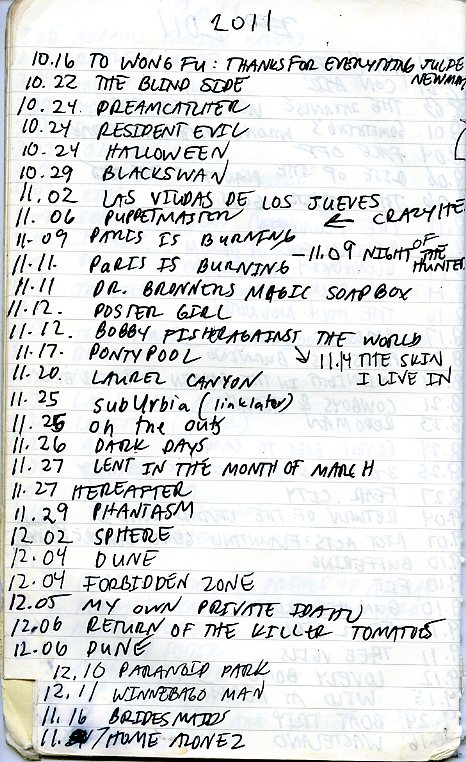 2011
10.16 TO WONG FU: THANKS FOR EVERYTHING JULIE
NEWMAR
10.22 THE BLIND SIDE
10.24. DREAMCATCHER
10.24 RESIDENT EVIL
10.24 HALLOWEEN
10.29 BLACKSWAN
11.02 LAS VIUDAS DE LOS JUEVES
11.06 PUPPETMASTER ←
11.09 PARIS IS BURNING — 11.09 NIGHT OF THE
HUNTER
11.11. PARIS IS BURNING
11.11 DR. BRONNERS MAGIC SOAPBOX
11.12. POSTER GIRL
11.12. BOBBY FISHERAGAINST THE WORLD
11.17. PONTYPOOL ↘ 11.14 THE SKIN
I LIVE IN
11.20. LAUREL CANYON
11.25 subUrbia (linklater)
11.26 on the outs
11.26 DARK DAYS
11.27 LENT IN THE MONTH OF MARCH
11.27 HEREAFTER
11.29 PHANTASM
12.02 SPHERE
12.04 DUNE
12.04 FORBIDDEN ZONE
12.05 MY OWN PRIVATE IDAHO
12.06 RETURN OF THE KILLER TOMATOES
12.06 DUNE
12.10 PARANOID PARK
12.11 WINNEBAGO MAN
11.16 BRIDESMAIDS
11. 17 HOME ALONE 2